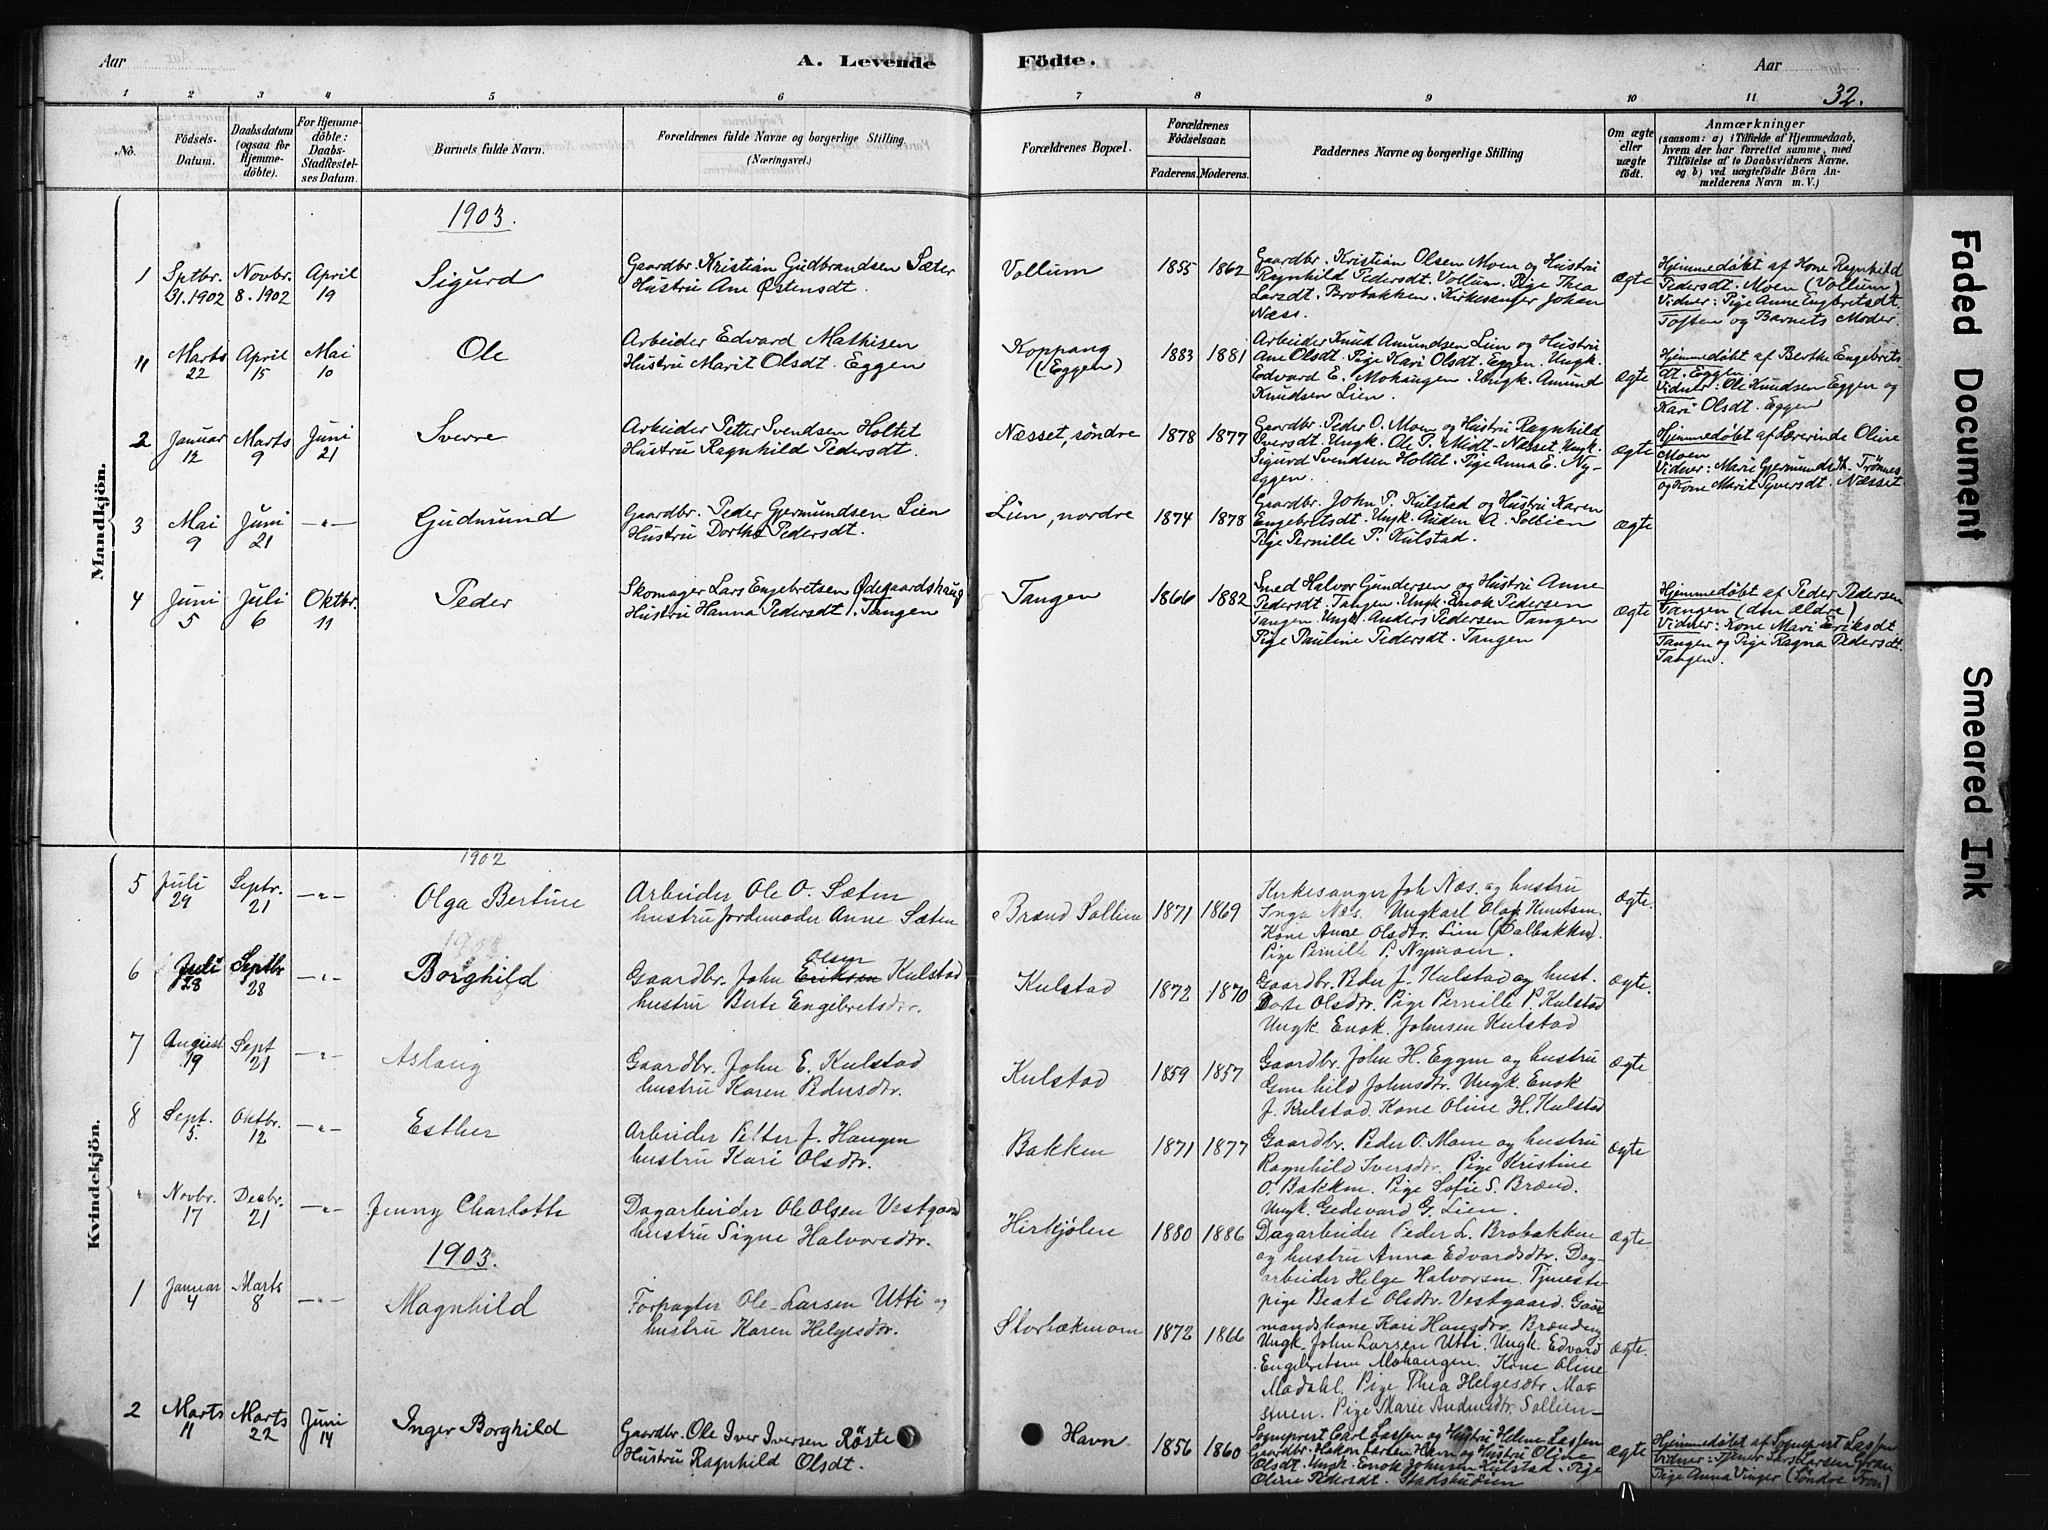 Aar
A. Levende
Födte.
Aar
1 2 3 4 5 6 7 8 9 10 11
32.
No.
Födsels-
Datum.
Daabsdatum
(ogsaa for
Hjemme-
döbte).
For Hjemme-
döbte:
Daabs-
Stadfæstel-
ses Datum.
Barnets fulde Navn.
Forældrenes fulde Navne og borgerlige Stilling
(Næringsvei.)
Forældrenes Bopæl.
Forældrenes
Födselsaar.
Faderens. Moderens.
Faddernes Navne og borgerlige Stilling
Om ægte
eller
uægte
födt.
Anmærkninger
(saasom: a) i Tilfælde af Hjemmedaab,
hvem der har forrettet samme, med
Tilföielse af to Daabsvidners Navne.
og b) ved uægtefödte Börn An-
melderens Navn m. V.)
Mandkjön.
1903.
1
Sptbr.
31.1902
Novbr.
8.1902
April
19
Sigurd
Gaardbr. Kristian Gudbrandsen Sæter
Hustru Ane Østensdt.
Vollum
1855 1862
Gaardbr. Kristian Olsen Moen og Hustru
Ragnhild Pedersdt. Vollum. Pige Thea
Larsdt. Brobakken. Kirkesanger Johan
Næss.
ægte
Hjemmedøbt af Kone Ragnhild
Pedersdt. Moen (Vollum)
Vidner: Pige Anne Engbretsdt.
Toften og Barnets Moder.
11
Marts
22
April
15
Mai
10
Ole
Arbeider Edvard Mathisen
Hustru Marit Olsdt. Eggen
Koppang
(Eggen)
1883 1881
Arbeider Knud Amundsen Lien og Hustru
Ane Olsdt. Pige Kari Olsdt. Eggen. Ungk.
Edvard E. Mohaugen. Ungk. Amund
Knudsen Lien.
ægte
Hjemmedøbt af Berthe Engebrets-
dt. Eggen.
Vidner: Ole Knudsen Eggen og
Kari Olsdt. Eggen
2
Januar
12
Marts
9
Juni
21
Sverre
Arbeider Petter Svendsen Holtet
Hustru Ragnhild Pedersdt.
Næsset, söndre
1878 1877
Gaardbr. Peder O. Moen og Hustru Ragnhild
Iversdt. Ungk. Ole P. Midt-Næsset. Ungk.
Sigurd Svendsen Holtet. Pige Anna E. Ny-
eggen.
ægte
Hjemmedøbt af Lærerinde Oline
Moen
Vidner: Marie Gjermundsdt. Trönnes
og Kone Marit Syversdt. Næsset.
3
Mai
9
Juni
21
-"-
Gudmund
Gaardbr. Peder Gjermundsen Lien
Hustru Dorthe Pedersdt.
Lien, nordre
1874 1878
Gaardbr. John P. Kulstad og Hustru Karen
Engebretsdt. Ungk. Auden A. Sollien
Pige Pernille P. Kulstad.
ægte
4
Juni
5
Juli
6
Oktbr.
11
Peder
Skomager Lars Engebretsen Ødegaardshaug
Hustru Hanna Pedersdt. Tangen
Tangen
1866 1882
Smed Halvor Gundersen og Hustru Anne
Pedersdt. Tangen. Ungk. Enok Pedersen
Tangen. Ungk. Anders Pedersen Tangen
Pige Pauline Pedersdt. Tangen
ægte
Hjemmedøbt af Peder Pedersen
Tangen (den ældre)
Vidner: Kone Mari Eriksdt
Tangen og Pige Ragna Pedersdt.
Tangen.
Kvindekjön.
1902
5
Juli
29
Septr.
21
-"-
Olga Bertine
Arbeider Ole O. Sæten
hustru jordemoder Anne Sæten
Brænd Sollien
1871 1869
Kirkesanger Joh Næs. og hustru
Inga Næs. Ungkarl Olaf Knutsen.
Kone Anne Olsdtr. Lien (Dalbakken).
Pige Pernille P. Nymoen.
ægte.
6
Juli
28
Septbr
28
-"-
Borghild
Gaardbr. John Eriksen Olsen Kulstad
hustru Berte Engebretsdtr.
Kulstad
1872 1870
Gaardbr. Peder J. Kulstad og hust.
Dorte Olsdtr. Pige Pernille P. Kulstad
Ungk. Enok Johnsen Kulstad
ægte.
7
August
19
Sept
21
-"-
Aslaug
Gaardbr. John E. Kulstad
hustru Karen Pedersdtr.
Kulstad
1859 1857
Gaardbr. John H. Eggen og hustru
Gunhild Johnsdtr. Ungk. Enok
J. Kulstad. Kone Oline H. Kulstad
ægte
8
Sept.
5.
Oktbr.
12
-"-
Esther
Arbeider Petter J. Haugen
hustru Kari Olsdtr.
Bakken
1871 1877
Gaardbr. Peder O. Moen og hustru
Ragnhild Iversdtr. Pige Kristine
O. Bakken. Pige Sofie S. Brænd.
Ungk. Gedevard G. Lien.
ægte
Novbr.
17
Decbr.
21
-"-
Jenny Charlotte
Dagarbeider Ole Olsen Vestgaard
hustru Signe Halvorsdtr.
Hirkjølen
1880 1886
Dagarbeider Peder L. Brobakken
og hustru Anna Edvardsdtr. Dag-
arbeider Helge Halvorsen. Tjeneste-
pige Beate Olsdtr. Vestgaard. Gaar
mandskone Kari Hansdtr. Brænden
ægte
1903.
1
Januar
4
Marts
8
-"-
Magnhild
Forpagter Ole Larsen Utti og
hustru Karen Helgesdtr.
Storbækmoen
1872 1866
Ungk. John Larsen Utti. Ungk. Edvard
Engebretsen Mohaugen. Kone Oline
Modahl. Pige Thea Helgesdtr. Mos
senen. Pige Marie Andersdtr. Sollien
ægte.
2
Marts
11
Marts
22
Juni
14
Inger Borghild
Gaardbr. Ole Iver Iversen Röste
Hustru Ragnhild Olsdt.
Havn
1856 1860
Sogneprest Carl Lassen og Hustru Helene Lassen
Gaardbr. Haken Larsen Havn og Hustru Oline
Olsdt. Ungk. Enok Johnsen Kulstad. Pige
Oline Pedersdt.
ægte
Hjemmedøbt af Sogneprest Lassen
Vidner: Tjener Lars Larsen Gran
Pige Anna Vinger (Söndre Fron)
Faded Document
Smeared Ink